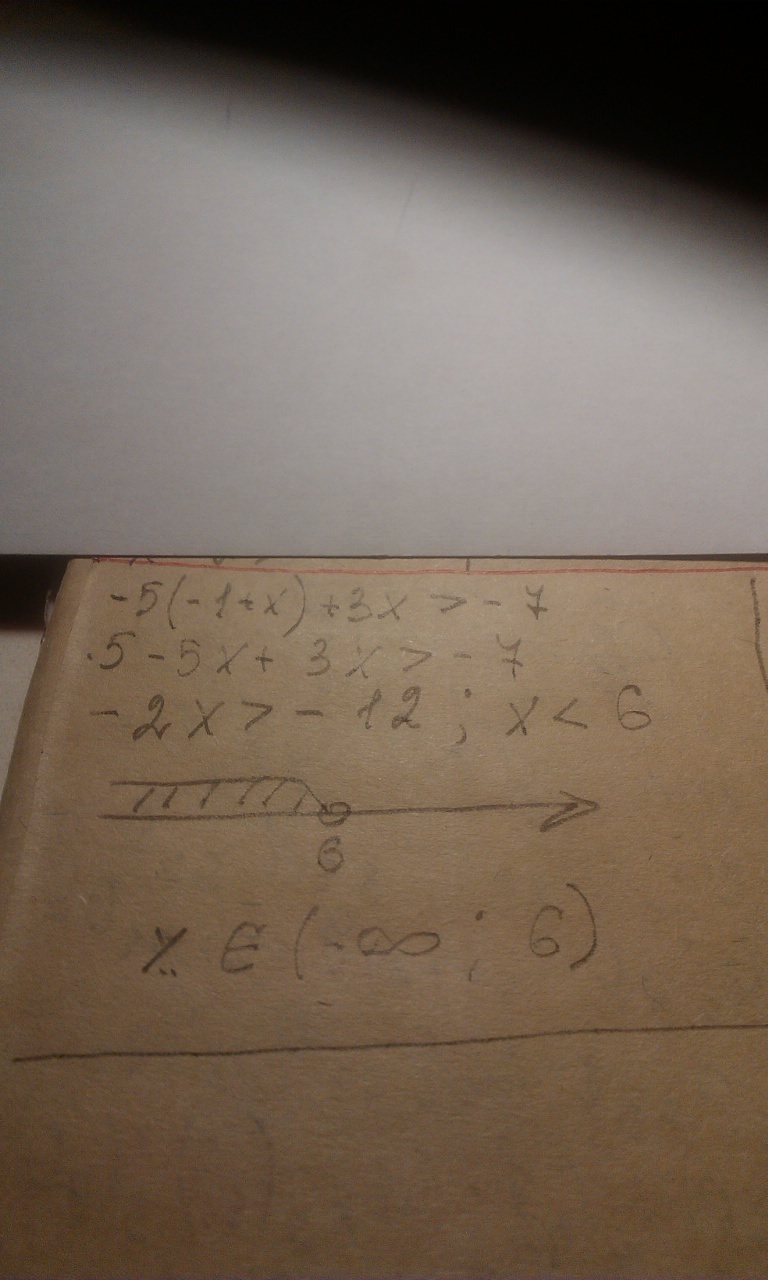 -5(-1+x)+3x>-7
5-5x+3x>-7
-2x>-12; x<6
6
x ∈ (-∞; 6)